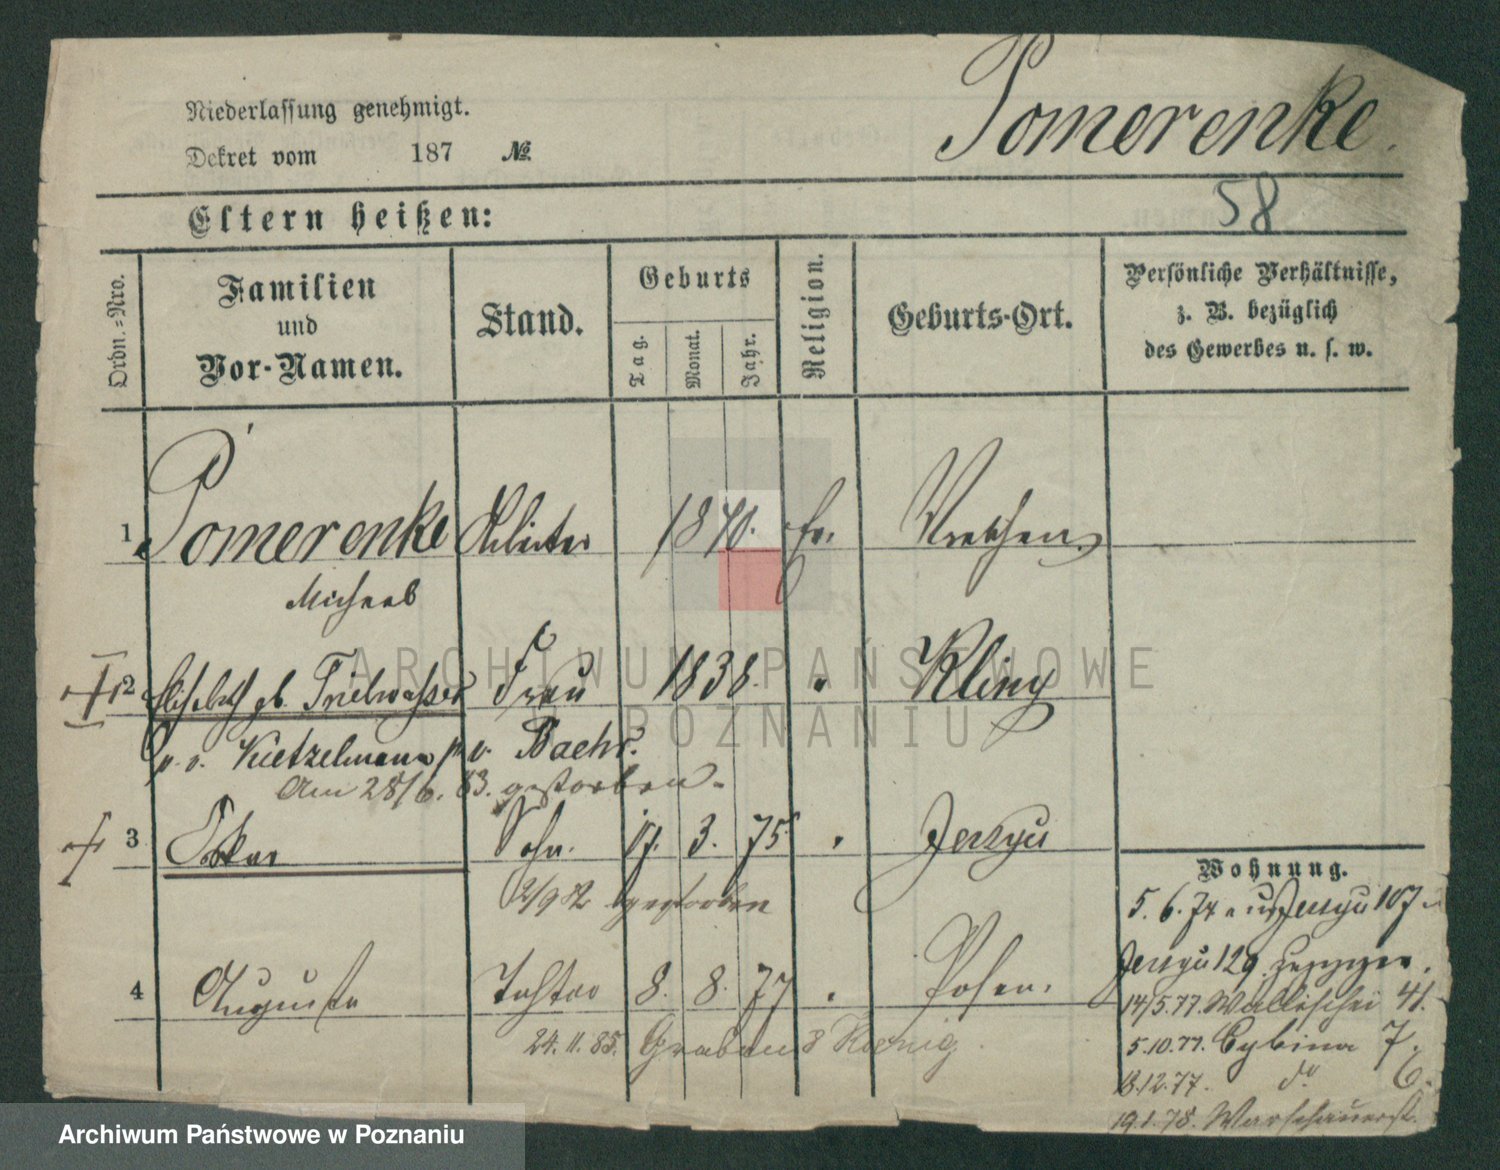 Niederlassung genehmigt.
Dekret vom 187 №
Pomerenke.
58
Eltern heißen:
Ordn.=Nro.
Familien
und
Vor-Namen.
Stand.
Geburts
Tag.
Monat.
Jahr.
Religion.
Geburts-Ort.
Persönliche Verhältnisse,
z. B. bezüglich
des Gewerbes u. s. w.
1 Pomerenke Arbeiter 1840. Ev.
Michael
2 Elisabeth gb. Trielwasser Frau 1838. " Kliny
p. v. Kietzelmann p. v. Baehr.
Am 28/6. 83. gestorben.
3 Oskar Sohn. 17. 3. 75 " Jerzyce
2/9 gestorben
4 Auguste Tochter 8. 8. 77 " Posen.
24. 11. 85. Graben 8 Koenig
Wohnung.
5. 6. 74 aus Jerzyce 107
Jerzyce 129
14/5. 77. Wallischei 41.
5. 10. 77. Cybina 7.
13. 12. 77. do 6.
19. 1. 78. Warschauerst.
ARCHIWUM PAŃSTWOWE
W POZNANIU
Archiwum Państwowe w Poznaniu